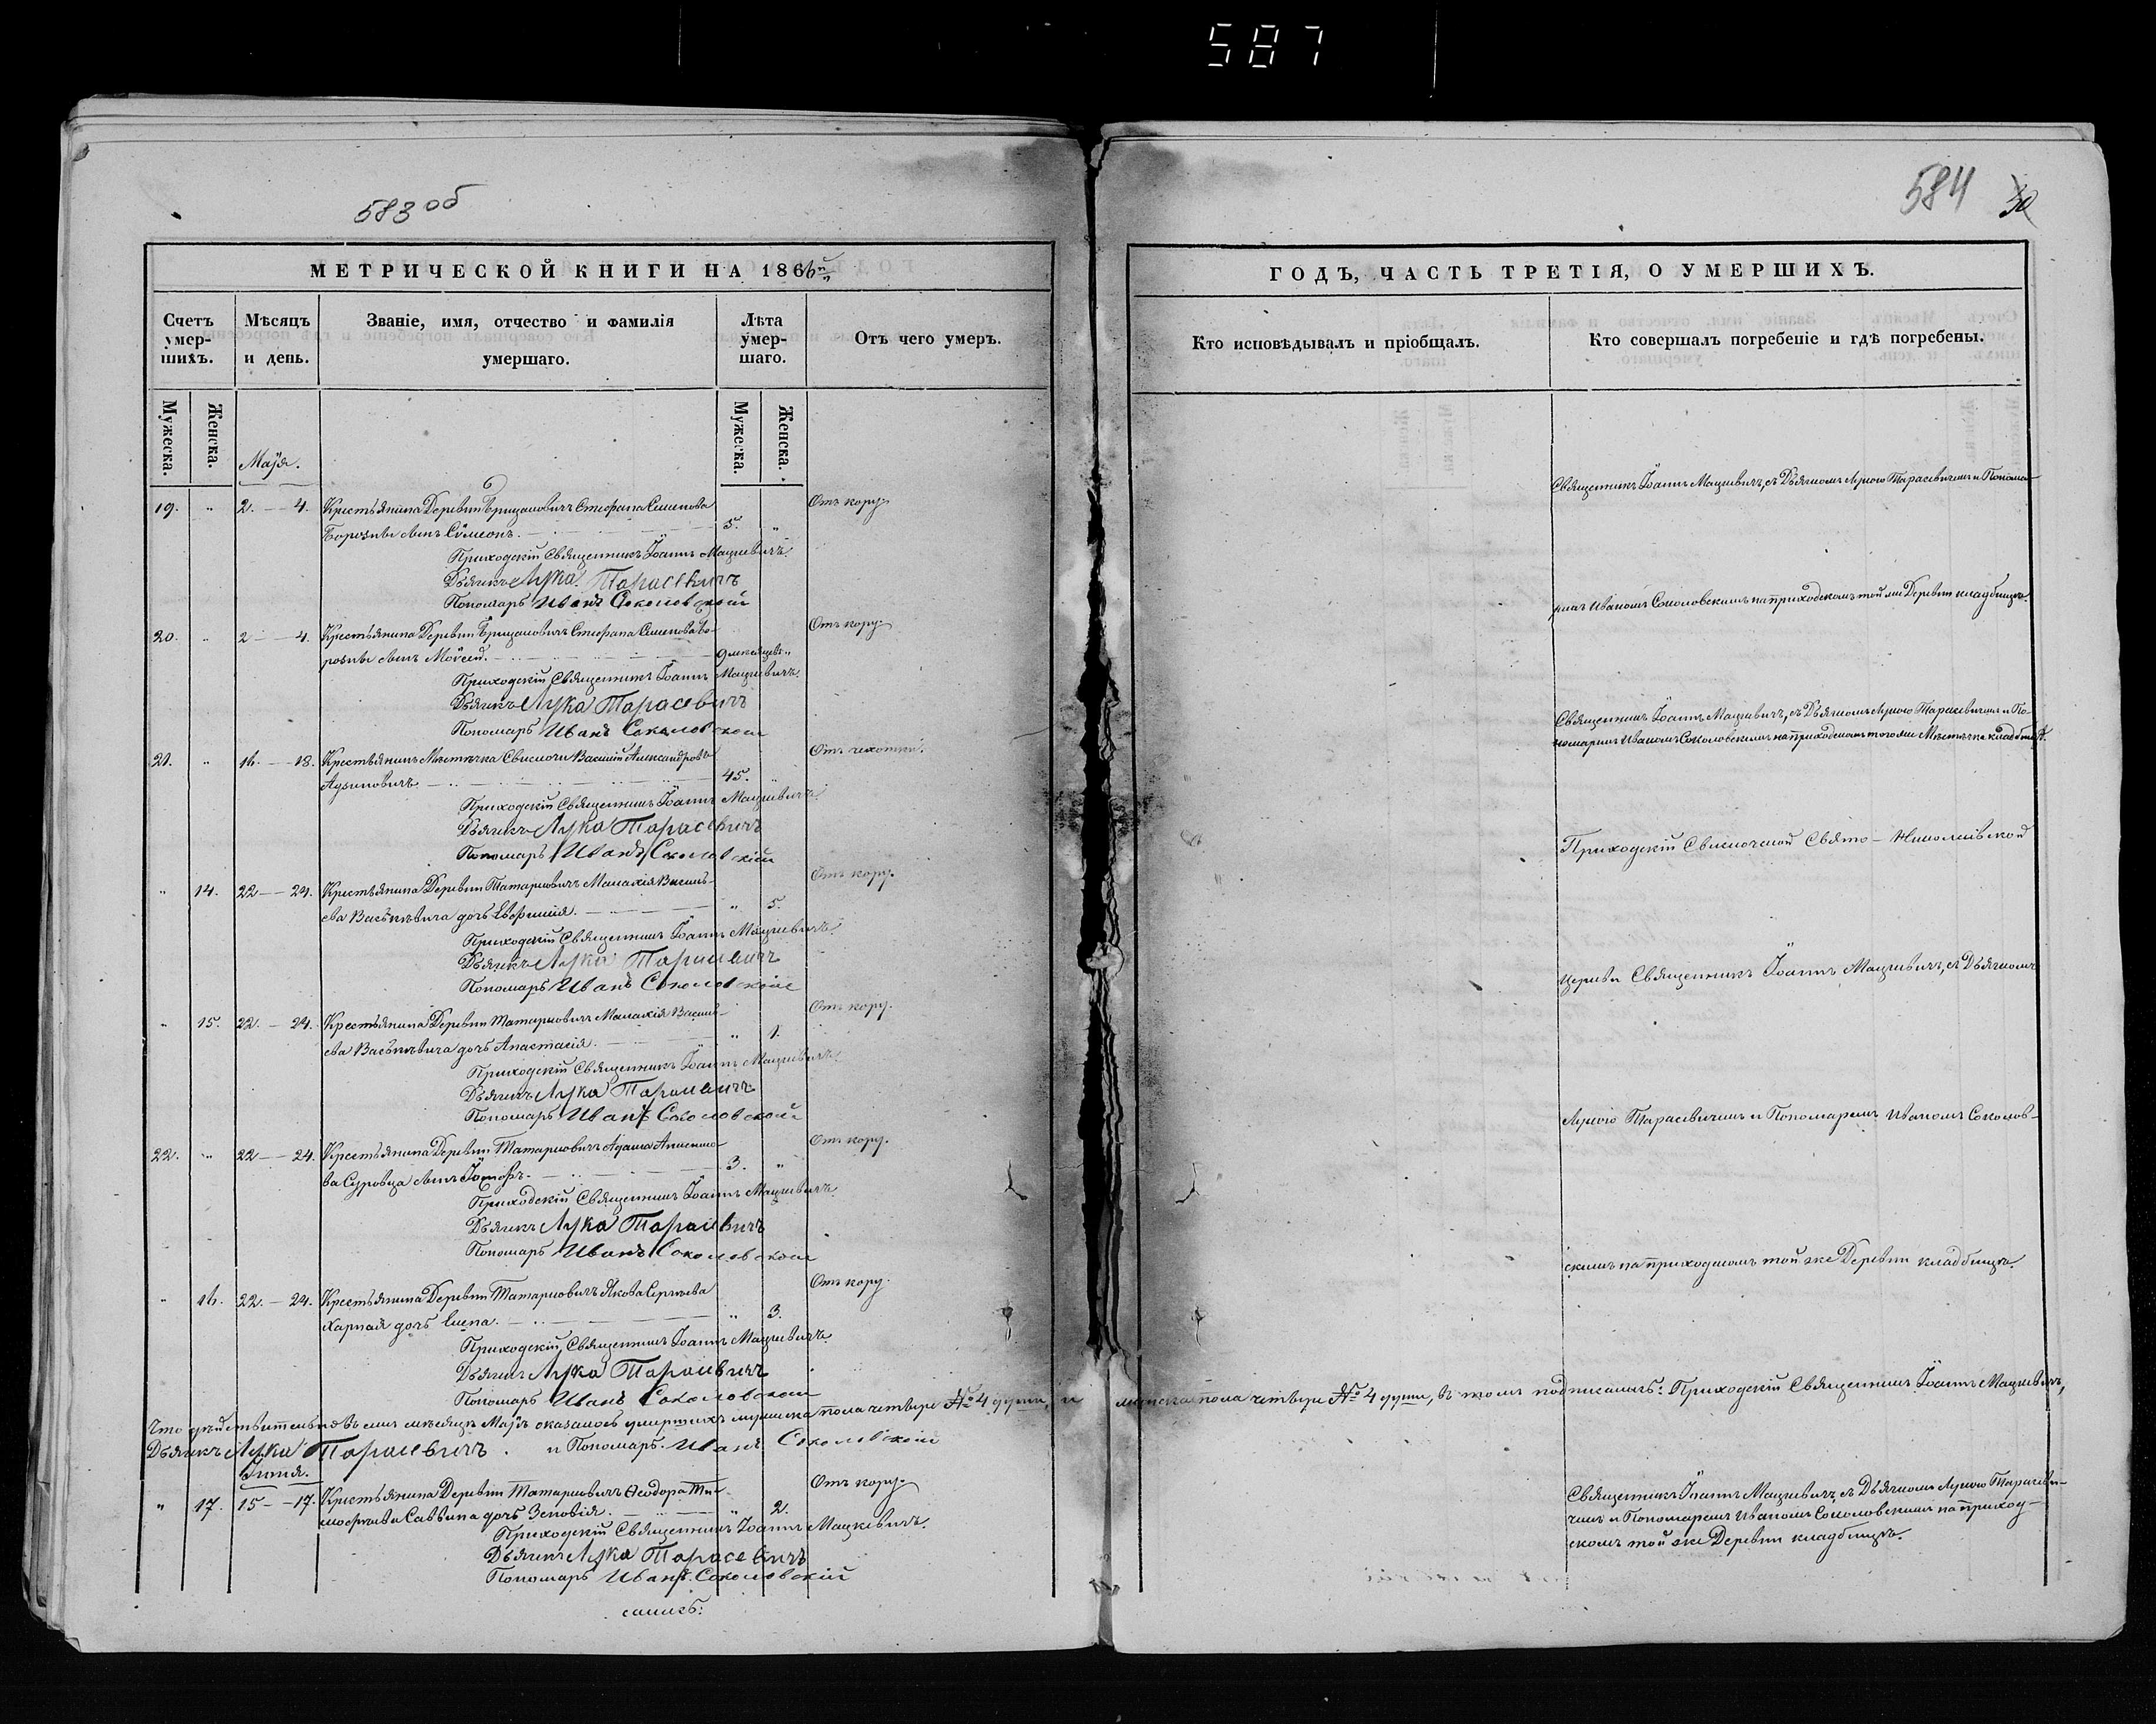 587
583 об
584 30
МЕТРИЧЕСКОЙ КНИГИ НА 1866й
Счетъ умерших.
Мѣсяцъ и день.
Званіе, имя, отчество и фамилія умершаго.
Лѣта умершаго.
Отъ чего умеръ.
Мужеска. Женска.
Мужеска. Женска.
Маія.
19. " 2. — 4. Крестьянина Деревни Стефана Семенова Отъ кору.
сынъ Сѵмеонъ. 5. "
Приходскій Священникъ Іоаннъ Мацкевичъ.
Дьячикъ Лука Тарасевичъ
Пономарь Иванъ Соколовскій
20. " 2 — 4. Крестьянина Деревни Стефана Семенова Бо- Отъ кору.
сынъ Моѵсей. 9 мѣсяцевъ "
Приходскій Священникъ Іоаннъ Мацкевичъ.
Дьячикъ Лука Тарасевичъ
Пономарь Иванъ Соколовскій
21. " 16. — 18. Крестьянинъ Мѣстечка Свислочи Василій Александровъ Отъ чахотки.
45. "
Приходскій Священникъ Іоаннъ Мацкевичъ.
Дьячикъ Лука Тарасевичъ
Пономарь Иванъ Соколовскій
" 14. 22 — 24. Крестьянина Деревни Татарковичъ Малахія Василь- Отъ кору.
ева Васькевича дочь Евфимія. " 5.
Приходскій Священникъ Іоаннъ Мацкевичъ.
Дьячикъ Лука Тарасевичъ
Пономарь Иванъ Соколовскій
" 15. 22. — 24. Крестьянина Деревни Татарковичъ Малахія Василь- Отъ кору.
ева Васькевича дочь Анастасія. " 1.
Приходскій Священникъ Іоаннъ Мацкевичъ.
Дьячикъ Лука Тарасевичъ
Пономарь Иванъ Соколовскій
22. " 22 — 24. Крестьянина Деревни Татарковичъ Адама Отъ кору.
ва Суровца сынъ Іосифъ. 3. "
Приходскій Священникъ Іоаннъ Мацкевичъ.
Дьячикъ Лука Тарасевичъ
Пономарь Иванъ Соколовскій
" 16. 22. — 24. Крестьянина Деревни Татарковичъ Якова Сергѣева Отъ кору.
дочь Елена. " 3.
Приходскій Священникъ Іоаннъ Мацкевичъ.
Дьячикъ Лука Тарасевичъ
Пономарь Иванъ Соколовскій
Что дѣйствительно въ семъ мѣсяцѣ Маѣ оказалось умершихъ мужеска пола четыре № 4 души, и женска пола четыре № 4 души, въ томъ подписались: Приходскій Священникъ Іоаннъ Мацкевичъ,
Дьячикъ Лука Тарасевичъ. и Пономарь Иванъ Соколовскій
Іюня.
" 17. 15 — 17. Крестьянина Деревни Татарковичъ Ѳеодора Ти- Отъ кору.
моѳеева Саввина дочь Зеновія. " 2.
Приходскій Священникъ Іоаннъ Мацкевичъ.
Дьячикъ Лука Тарасевичъ
Пономарь Иванъ Соколовскій
ГОДЪ, ЧАСТЬ ТРЕТІЯ, О УМЕРШИХЪ.
Кто исповѣдывалъ и пріобщалъ.
Кто совершалъ погребеніе и гдѣ погребены.
Священникъ Іоаннъ Мацкевичъ, съ Дьячкомъ Лукою Тарасевичемъ и Понома-
ремъ Иваномъ Соколовскимъ на приходскомъ той же Деревни кладбищѣ.
Священникъ Іоаннъ Мацкевичъ, съ Дьячкомъ Лукою Тарасевичемъ и По-
номаремъ Иваномъ Соколовскимъ на приходскомъ того же Мѣстечка кладбищѣ.
Приходскій Свислочской Свято-Николаевской
церкви Священникъ Іоаннъ Мацкевичъ, съ Дьячкомъ
Лукою Тарасевичемъ и Пономаремъ Иваномъ Соколов-
скимъ на приходскомъ той же Деревни кладбищѣ.
Священникъ Іоаннъ Мацкевичъ, съ Дьячкомъ Лукою Тарасеви-
чемъ и Пономаремъ Иваномъ Соколовскимъ на приход-
скомъ той же Деревни кладбищѣ.